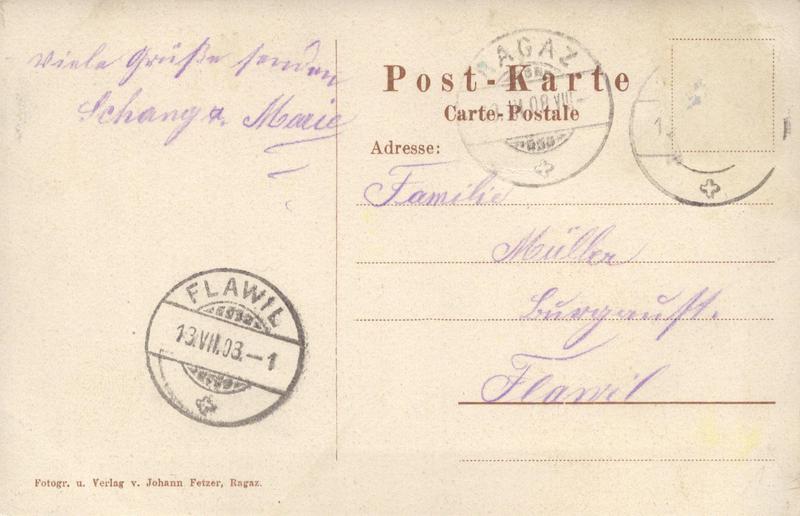 Viele Grüße senden
Schang & Marie
Post-Karte
Carte-Postale
Adresse:
Familie
Müller
Burgaustr.
Flawil
RAGAZ
08.VIII-
1
FLAWIL
13.VII.08.-1
Fotogr. u. Verlag v. Johann Fetzer, Ragaz.